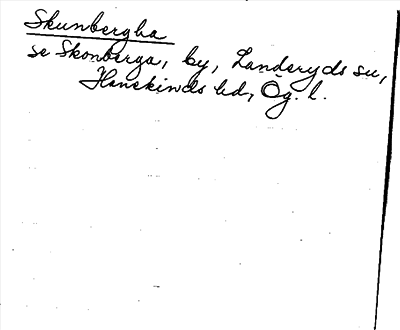 Skunbergha
se Skonberga, by, Landeryds sn,
Hanekinds hd, Ög. l.